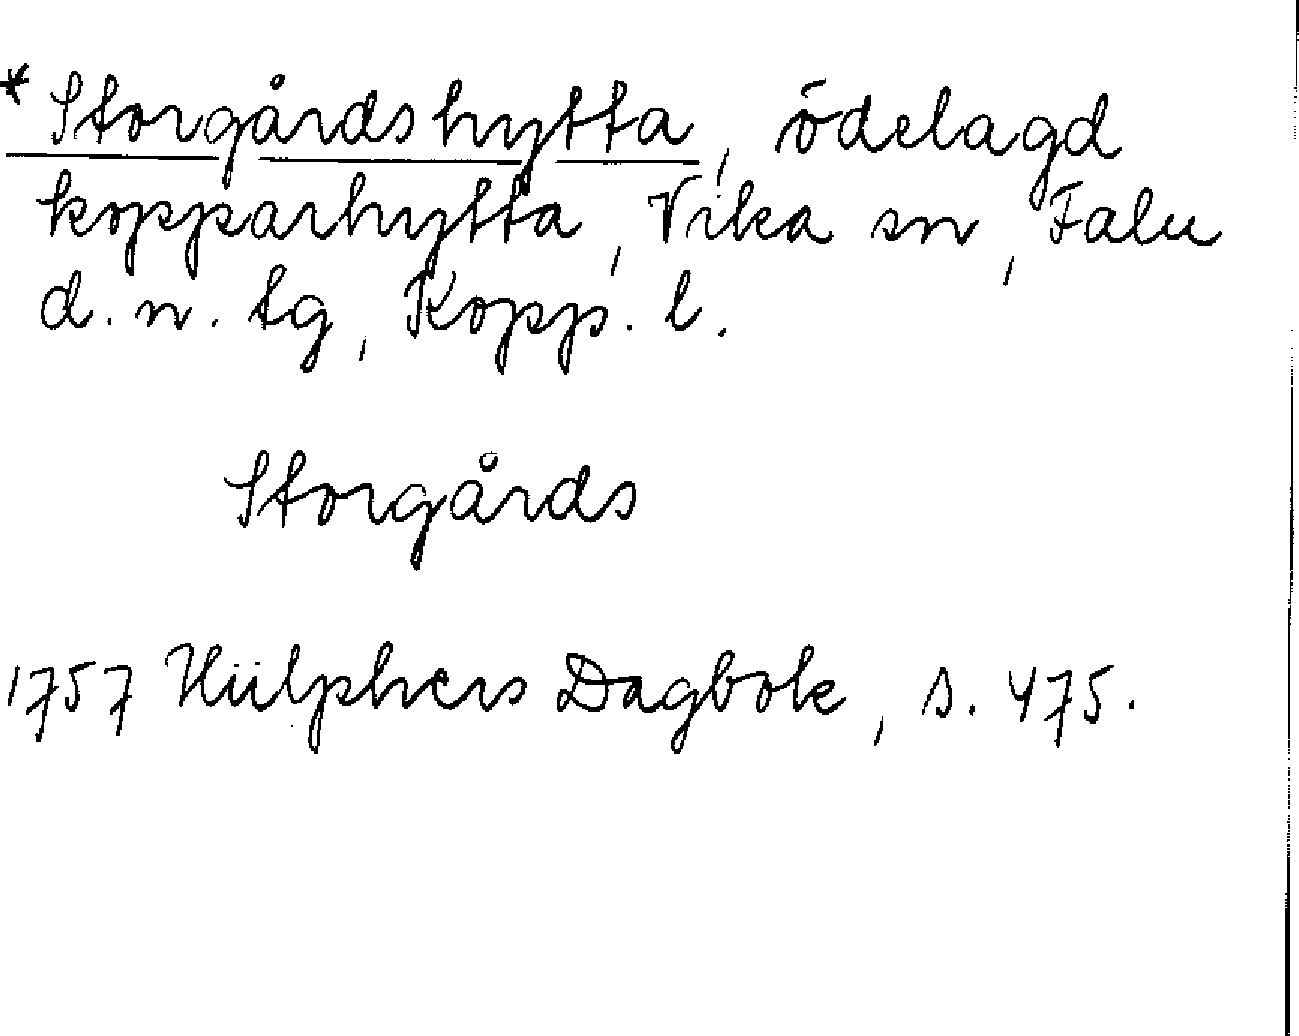 * Storgårdshytta, ödelagd
kopparhytta, Vika sn, Falu
d. n. tg, Kopp. l.
Storgårds
1757 Hülphers Dagbok, s. 475.